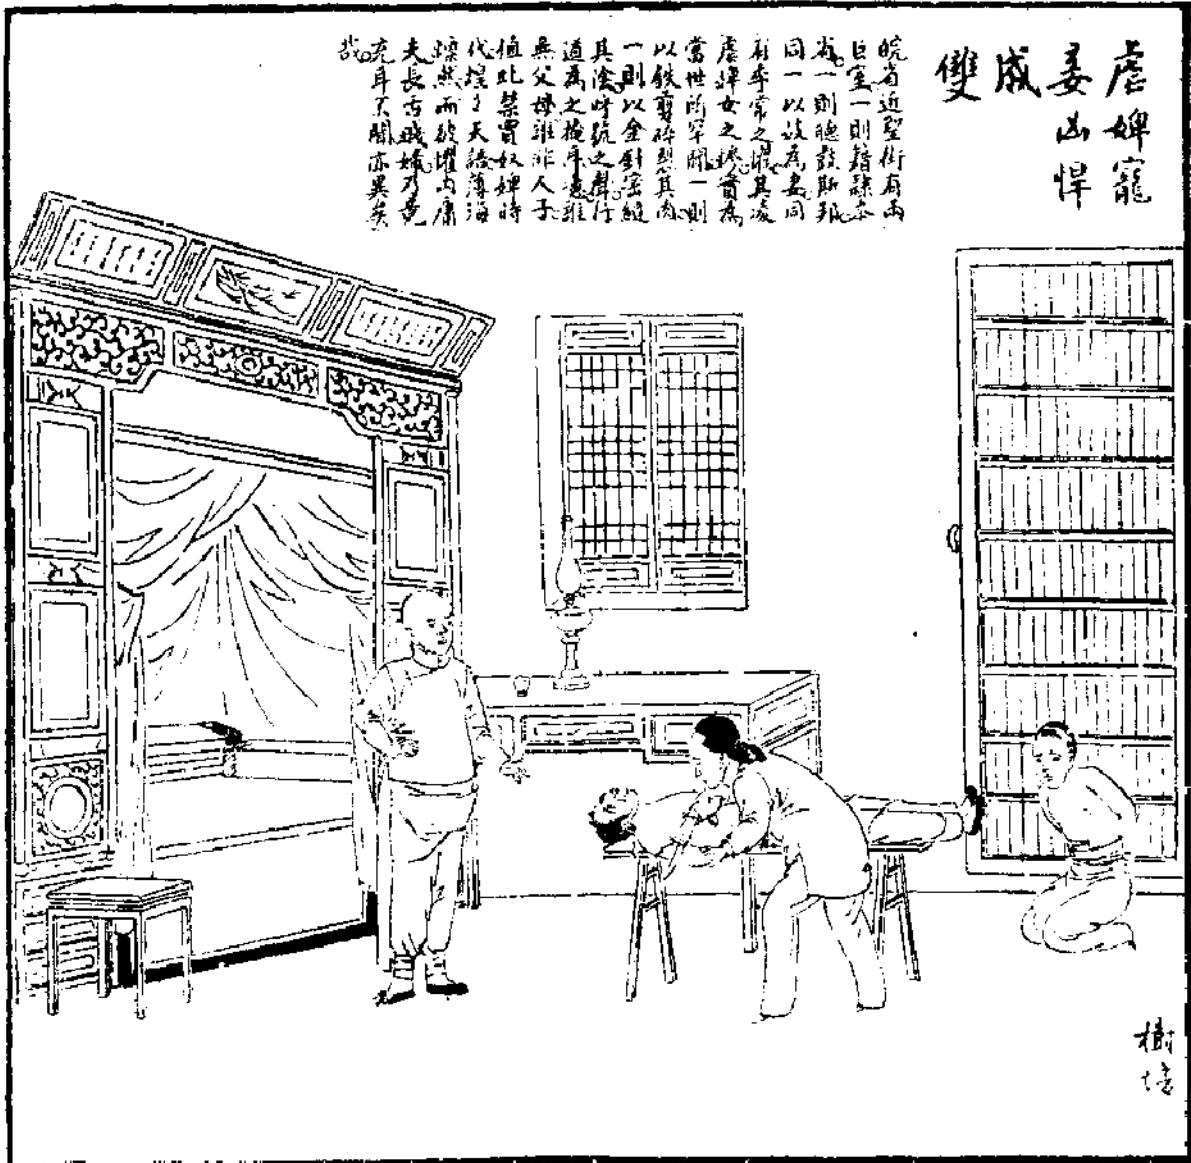 虐婢寵
妾凶悍
成
雙
皖省近聖街有兩
巨室一則籍隸本
省一則聽鼓斯邦
同一以妓為妻同
有奇常之權其凌
虐婢女之慘實為
當世所罕聞一則
以鉄剪碎剪其肉
一則以金針密縫
其陰呼號之聲行
道為之掩耳憶誰
無父母誰非人子
值此禁買奴婢時
代煌之天語薄海
懍然而彼懼內庸
夫長舌賤婦乃竟
充耳不聞亦異矣
哉
樹培